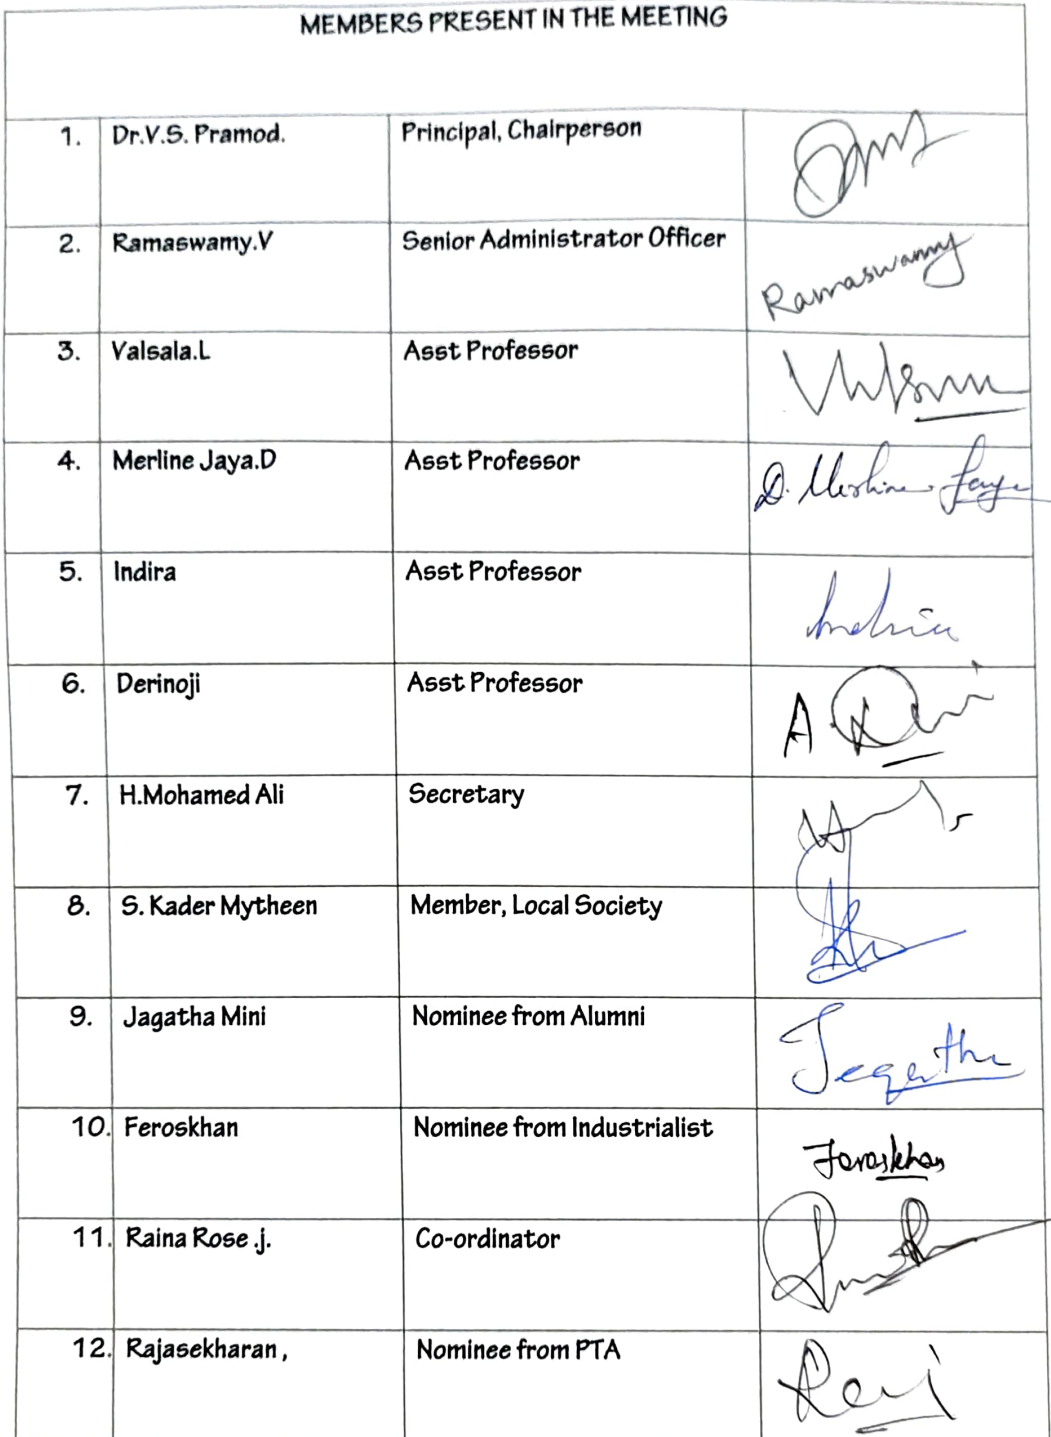 MEMBERS PRESENT IN THE MEETING
1. Dr.V.S. Pramod. Principal, Chairperson
2. Ramaswamy.V Senior Administrator Officer Ramaswamy
3. Valsala.L Asst Professor
4. Merline Jaya.D Asst Professor D. Merline Jaya
5. Indira Asst Professor Indira
6. Derinoji Asst Professor A
7. H.Mohamed Ali Secretary
8. S. Kader Mytheen Member, Local Society
9. Jagatha Mini Nominee from Alumni Jegatha
10. Feroskhan Nominee from Industrialist Feroskhan
11. Raina Rose .j. Co-ordinator
12. Rajasekharan , Nominee from PTA